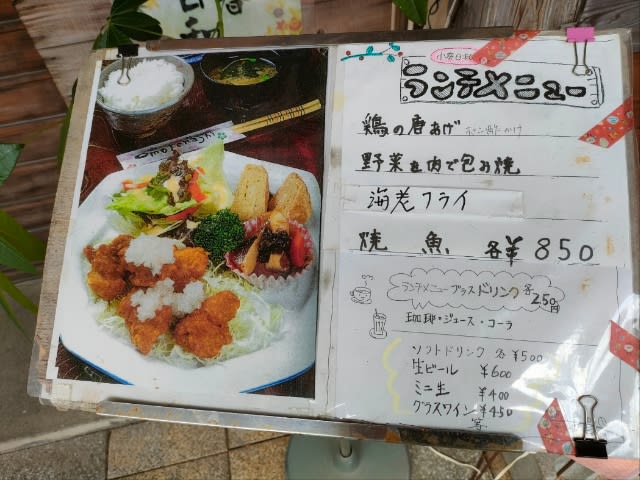 小春日和
ランチメニュー
鶏の唐あげ ポン酢かけ
野菜を肉で包み焼
海老フライ
焼 魚 各¥850
ランチメニュープラスドリンク各250円
珈琲・ジュース・コーラ
ソフトドリンク 各¥500
生ビール ¥600
ミニ生 ¥400
グラスワイン ¥450